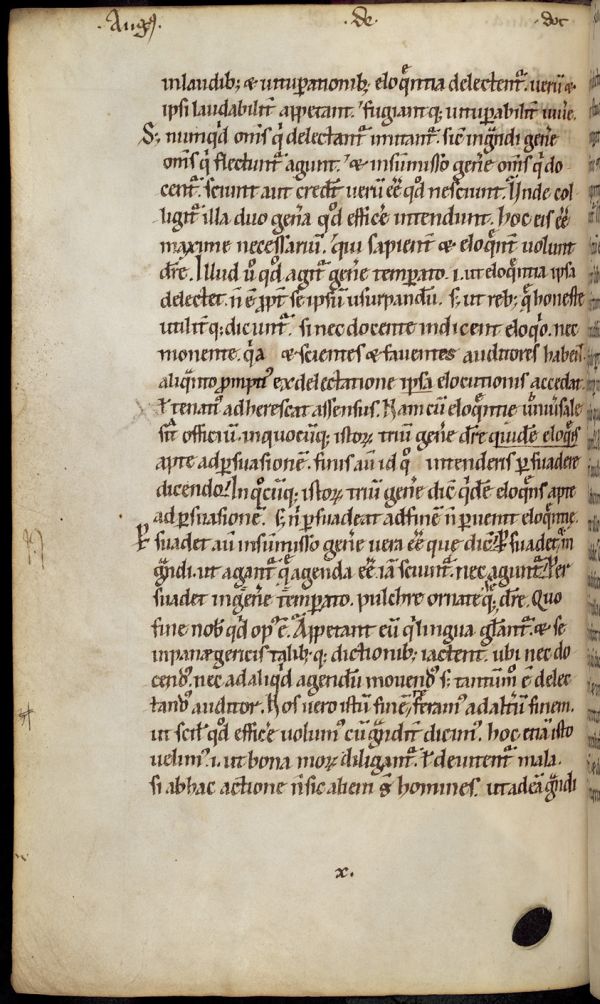 . Aug᷒ . . de . . doc
inlaudib; & uituꝑationib; eloq̄ntia delectent᷑. ueru᷒ &
ipsi laudabilit̄ appetant. fugiantq; uituꝑabilit̄ uiu̓e.
S; nu᷒qd̓ om̄s q̓ delectant᷑ imitant᷑. sic̄ ingͣndi gen̓e
om̄s q̓ flectunt᷑ agunt. & insu᷒misso gen̓e om̄s q̓ do
cent᷑. sciunt aut credu᷒t ueru᷒ eē̄ qd̓ nesciunt. Unde col
ligit᷑ illa duo gen̓a qd̓ effic̓e intendunt. hoc eis eē̄
maxime necessariu᷒. qui sapient̄ & eloq̄nt̄ uolunt
dic̓e. Illud u̓ qd̓ agit᷑ gen̓e temperato. i. ut eloq̄ntia ipsa
delectet. n̄ ē̄ ꝓpt̄ se ipsu᷒ usurpandu᷒. s; ut reb; q̄ honeste
utilit̄q; dicunt᷑. si nec docente indigent eloq̓o. nec
monente. q̓a & scientes & fauentes auditores habent.
aliqͣnto promptiꝰ ex delectatione ipsa elocutionis accedat.
ł tenatiꝰ adherescat assensus. Nam cu᷒ eloq̄ntie uniu̓sale
sit officiu᷒. inquocu᷒q; istoꝝ triu᷒ gen̓e dic̓e quidē eloq̄ns
apte adꝑsuasionē. finis au᷒ id qd̓ intenderis ꝑsuadere
dicendo. In qo̓cu᷒q; istoꝝ triu᷒ gen̓e dic̄ q̓dē eloq̄ns apte
adꝑsuasionē. s; n̓ ꝑsuadeat adfinē n̄ ꝑuenit eloq̄ntie.
Ꝑsuadet au᷒ insu᷒misso gen̓e uera eē̄ que dic̄. Ꝑsuadet in
gͣndi. ut agant᷑ q̄ agenda eē̄. ia᷒ sciunt᷑. nec agunt᷑. Per
suadet ingen̓e tēperato. pulchre ornateq; dic̓e. Quo
fine nob̓ qd̓ opꝰ ē̄. Appetant eu᷒ q̓ lingua gl̓ant᷑. & se
inpanægericis talib; q; dictionib; iactent. ubi nec do
cendꝰ. nec adaliqd̓ agendu᷒ mouendꝰ s; tantu᷒mo ē̄ delec
tandꝰ auditor. Nos uero istu᷒ finē referamꝰ adalt̓u᷒ finem.
ut scil̓ qd̓ effic̓e uolumꝰ cu᷒ gͣndit̄ dicimꝰ. hoc etia᷒ isto
uelimꝰ. i. ut bona moꝝ diligant᷑. ł deuitent᷑ mala.
si ab hac actione n̄ sic alieni s̄ homines. ut adeā gͣndi
x.